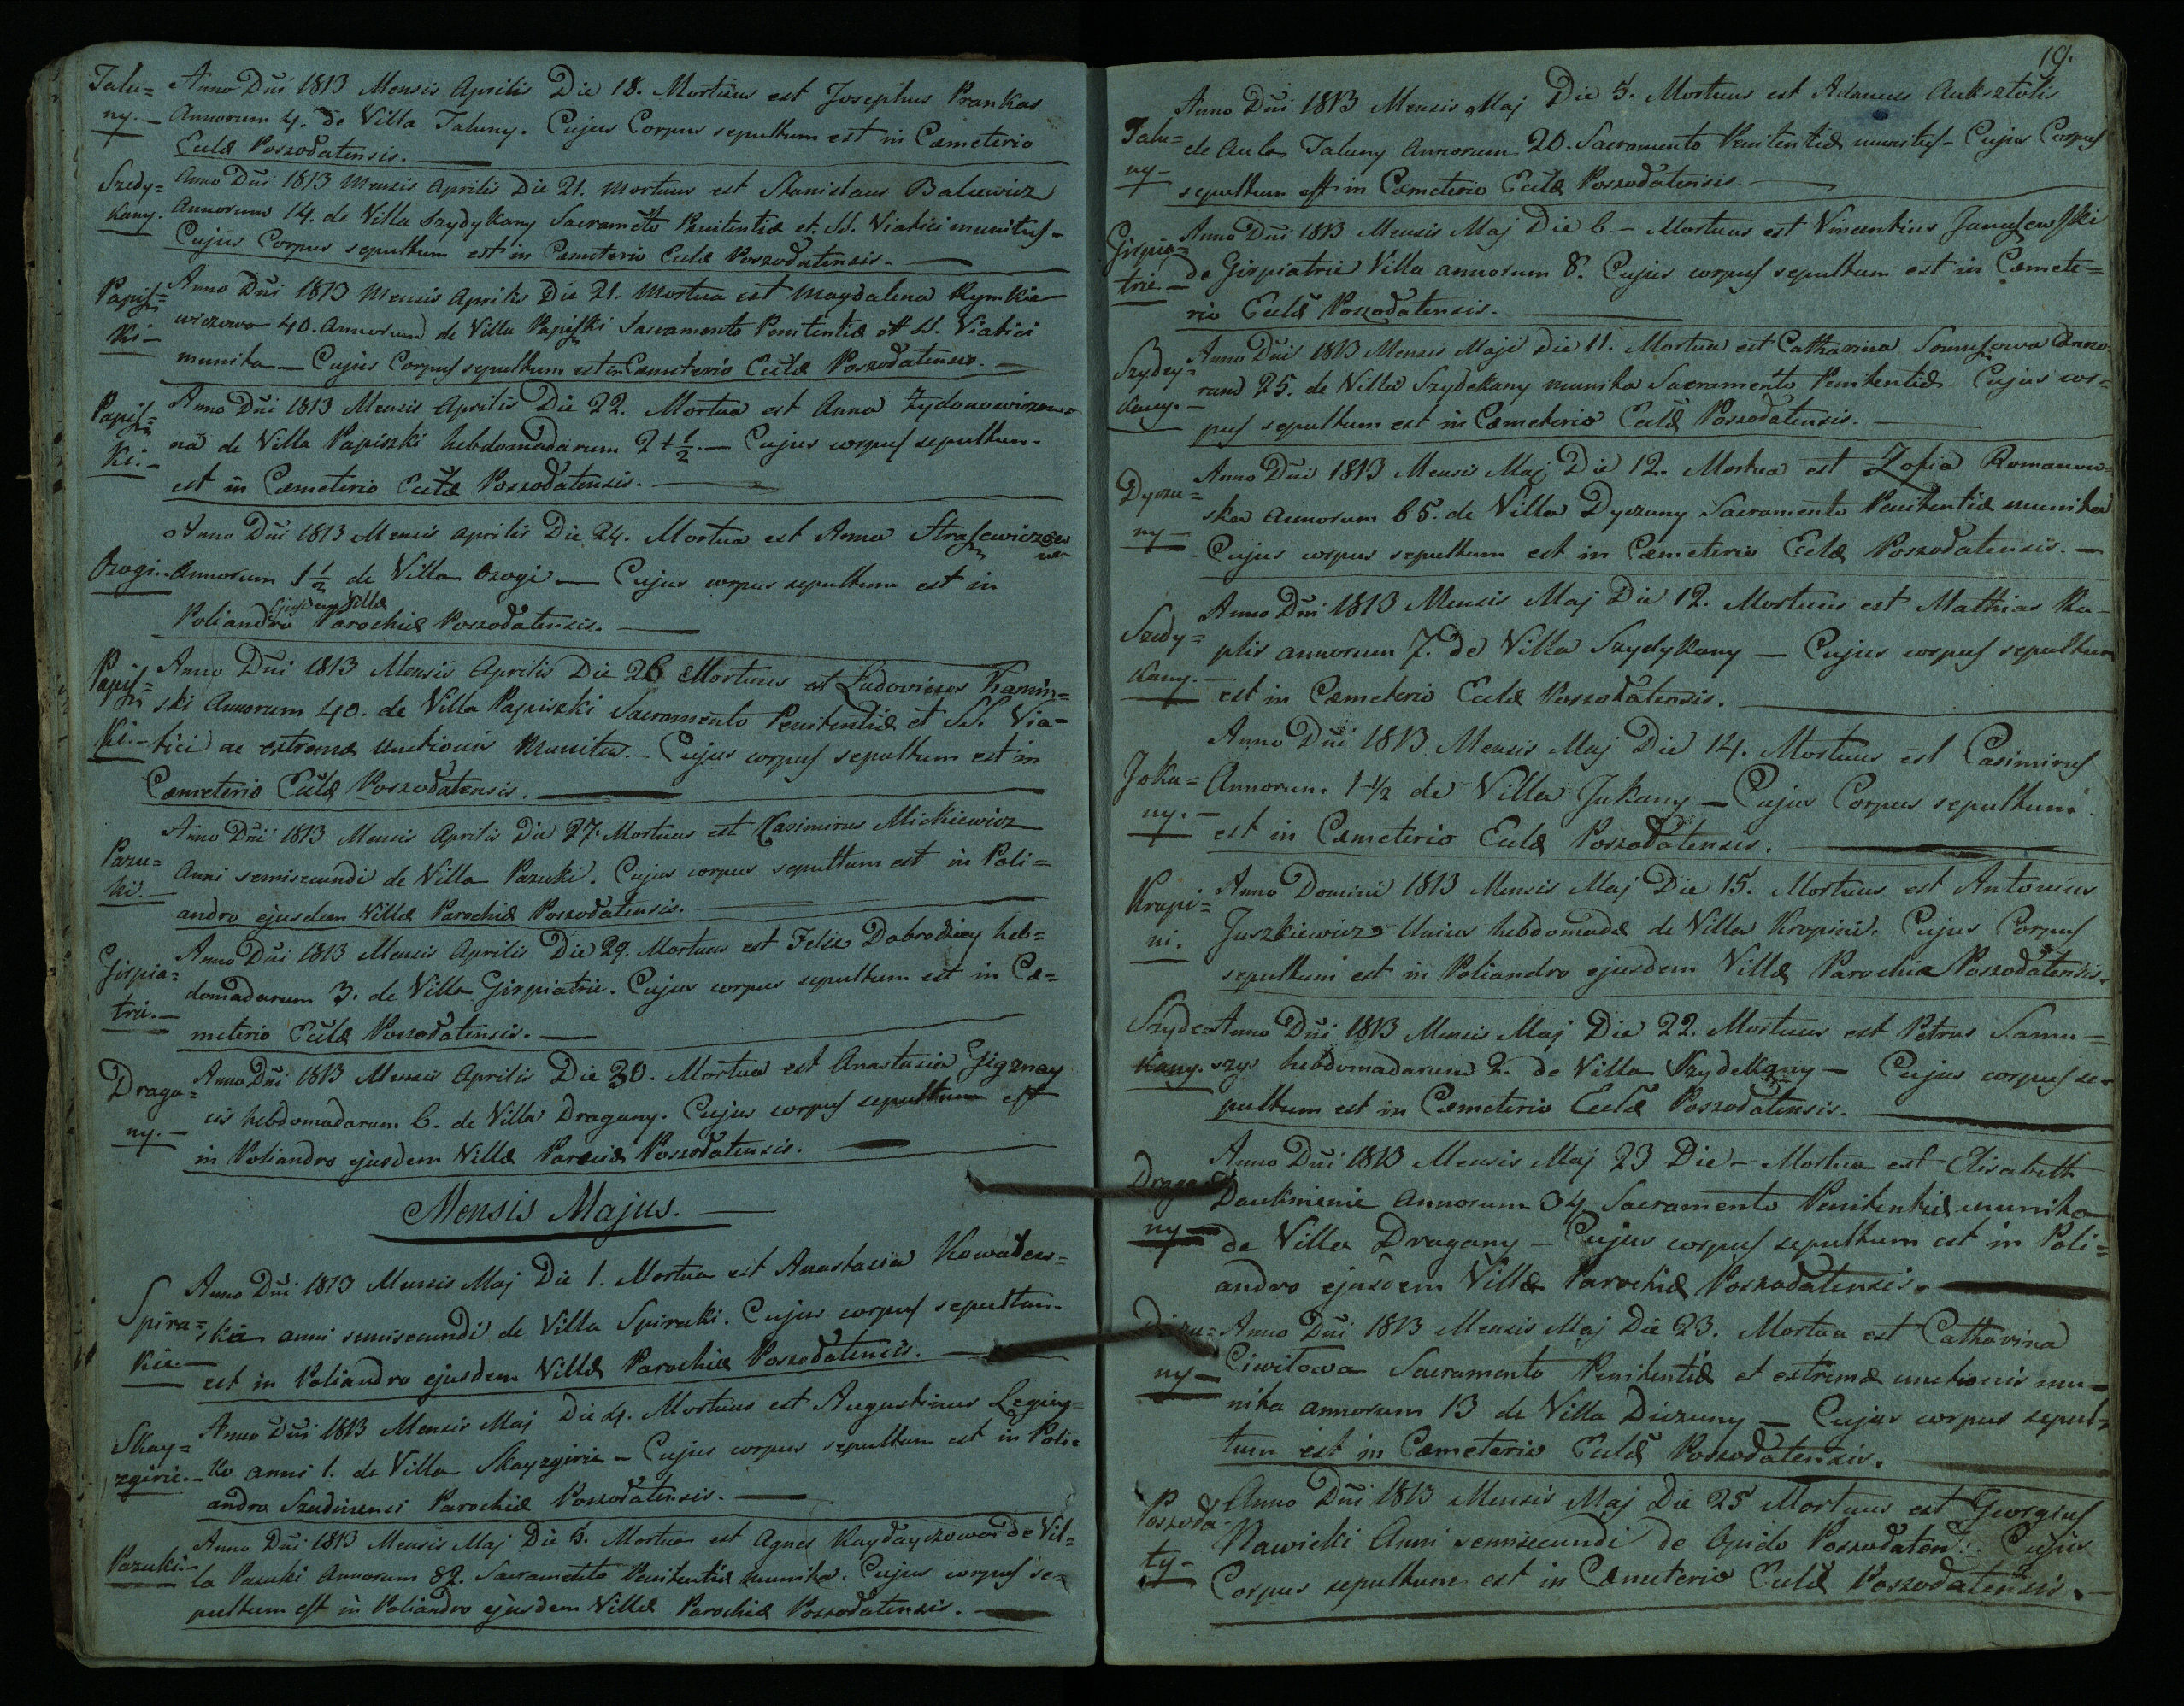 Talu= Anno Dni 1813 Mensis Aprilis Die 18. Mortuus est Josephus Prankas
ny.— Annorum 4. de Villa Taluny. Cujus Corpus sepultum est in Cæmeterio
Eclæ Poszodatensis.
Szedy= Anno Dni 1813 Mensis Aprilis Die 21. Mortuus est Stanislaus Balcewicz
kany. Annorum 14. de Villa Szydykany Sacrameto Penitentiæ et SS. Viatici munitus—
Cujus Corpus sepultum est in Cæmeterio Eclæ Poszodatensis.
Papisz= Anno Dni 1813 Mensis Aprilis Die 21. Mortua est Magdalena Rymkie
ki— wiczowa 40. Annorum de Villa Papiszki Sacramento Penitentiæ et SS. Viatici
munita— Cujus Corpus sepultum est in Cæmeterio Eclæ Poszodatensis.
Papisz= Anno Dni 1813 Mensis Aprilis Die 22. Mortua est Anna Zydonowiczow=
ki.— na de Villa Papiszki hebdomadarum 2+½.— Cujus corpus sepultum
est in Cæmeterio Eclæ Poszodatensis.
Anno Dni 1813 Mensis Aprilis Die 24. Mortua est Anna Straszewiczow
na
Ozogi.— Annorum 1½ de Villa Ozogi— Cujus corpus sepultum est in
Poliandro Ejusdem Villæ Parochiæ Poszodatensis.
Papisz= Anno Dni 1813 Mensis Aprilis Die 26 Mortuus est Ludovicus Kamin=
ski Annorum 40. de Villa Papiszki Sacramento Penitentiæ et SS. Via=
ki.— tici ac extremæ unctionis Munitus.— Cujus corpus sepultum est in
Cæmeterio Eclæ Poszodatensis.
Pazu= Anno Dni 1813 Mensis Aprilis Die 27. Mortuus est Kasimirus Mickiewicz
ki.— Anni semisecundi de Villa Pazuki. Cujus corpus sepultum est in Poli=
andro ejusdem Villæ Parochiæ Poszodatensis.
Girpia= Anno Dni 1813 Mensis Aprilis Die 29. Mortuus est Felix Dabrodziey heb=
trie.— domadarum 3. de Villa Girpiatrie. Cujus corpus sepultum est in Cæ=
meterio Eclæ Poszodatensis.
Draga= Anno Dni 1813 Mensis Aprilis Die 30. Mortua est Anastasia Gigznay
ny.— cis hebdomadarum 6. de Villa Dragany. Cujus corpus sepultum est
in Poliandro ejusdem Villæ Parochiæ Poszodatensis.
Mensis Majus.—
Spira= Anno Dni 1813 Mensis Maj Die 1. Mortua est Anastasia Kowalew=
kie— ska anni semisecundi de Villa Spiraki. Cujus corpus sepultum
est in Poliandro ejusdem Villæ Parochiæ Poszodatensis.
Skay= Anno Dni 1813 Mensis Maj Die 4. Mortuus est Augustinus Leging=
zgirie.— ko anni 1. de Villa Skayzgirie— Cujus corpus sepultum est in Poli=
andro Szudinenci Parochiæ Poszodatensis.
Anno Dni 1813 Mensis Maj Die 5. Mortua est Agnes Kaydayczowa de Vil=
Pazuki.— la Pazuki Annorum 82. Sacramento Penitentiæ munita. Cujus corpus se=
pultum est in Poliandro ejusdem Villæ Parochiæ Poszodatensis.
19.
Anno Dni 1813 Mensis Maj Die 5. Mortuus est Adamus Auksztolis
Talu= de Aula Taluny Annorum 20. Sacramento Penitentiæ munitus— Cujus Corpus
ny— sepultum est in Cæmeterio Eclæ Poszodatensis.
Girpia= Anno Dni 1813 Mensis Maj Die 6.— Mortuus est Vincentius Januszewski
trie— de Girpiatrie Villa annorum 8. Cujus corpus sepultum est in Cæmete=
rio Eclæ Poszodatensis.
Szydey= Anno Dni 1813 Mensis Maji Die 11. Mortua est Catharina Somuszowa Anno
kany.— rum 25. de Villa Szydekany munita Sacramento Penitentiæ— Cujus cor=
pus sepultum est in Cæmeterio Eclæ Poszodatensis.
Dyczu= Anno Dni 1813 Mensis Maj Die 12. Mortua est Zofia Romanow=
ska Annorum 65. de Villa Dyczuny Sacramento Penitentiæ munita
ny— Cujus corpus sepultum est in Cæmeterio Eclæ Poszodatensis.—
Anno Dni 1813 Mensis Maj Die 12. Mortuus est Mathias Ku=
Szedy= plis annorum 7. de Villa Szydykany— Cujus corpus sepultum
kany.— est in Cæmeterio Eclæ Poszodatensis.
Anno Dni 1813 Mensis Maj Die 14. Mortuus est Casimirus
Joka= Annorum. 1½ de Villa Jukany— Cujus Corpus sepultum
ny.— est in Cæmeterio Eclæ Poszodatensis.
Krapi= Anno Domini 1813 Mensis Maj Die 15. Mortuus est Antonius
ni. Juszkiewicz Unius hebdomadæ de Villa Kropini. Cujus Corpus
sepultum est in Poliandro ejusdem Villæ Parochiæ Poszodatensis.
Szyde= Anno Dni 1813 Mensis Maj Die 22. Mortuus est Petrus Samu—
kany. szys hebdomadarum 2. de Villa Szydekany— Cujus corpus se=
pultum est in Cæmeterio Eclæ Poszodatensis.
Anno Dni 1813 Mensis Maj 23 Die— Mortua est Elisabeth
Draga= Daukinienie Annorum 34 Sacramento Penitentiæ munita
ny— de Villa Dragany— Cujus corpus sepultum est in Poli=
andro ejusdem Villæ Parochiæ Poszodatensis.
Diczu= Anno Dni 1813 Mensis Maj Die 23. Mortua est Catharina
ny— Ciwilowa Sacramento Penitentiæ et extremæ unctionis mu—
nita annorum 13 de Villa Diczuny— Cujus corpus sepul=
tum est in Cæmeterio Eclæ Poszodatensis.
Poszoda= Anno Dni 1813 Mensis Maj Die 25 Mortuus est Georgius
Nawicki Anni semisecundi de Opido Poszodaten: Cujus
ty— Corpus sepultum est in Cæmeterio Eclæ Poszodatensis.—